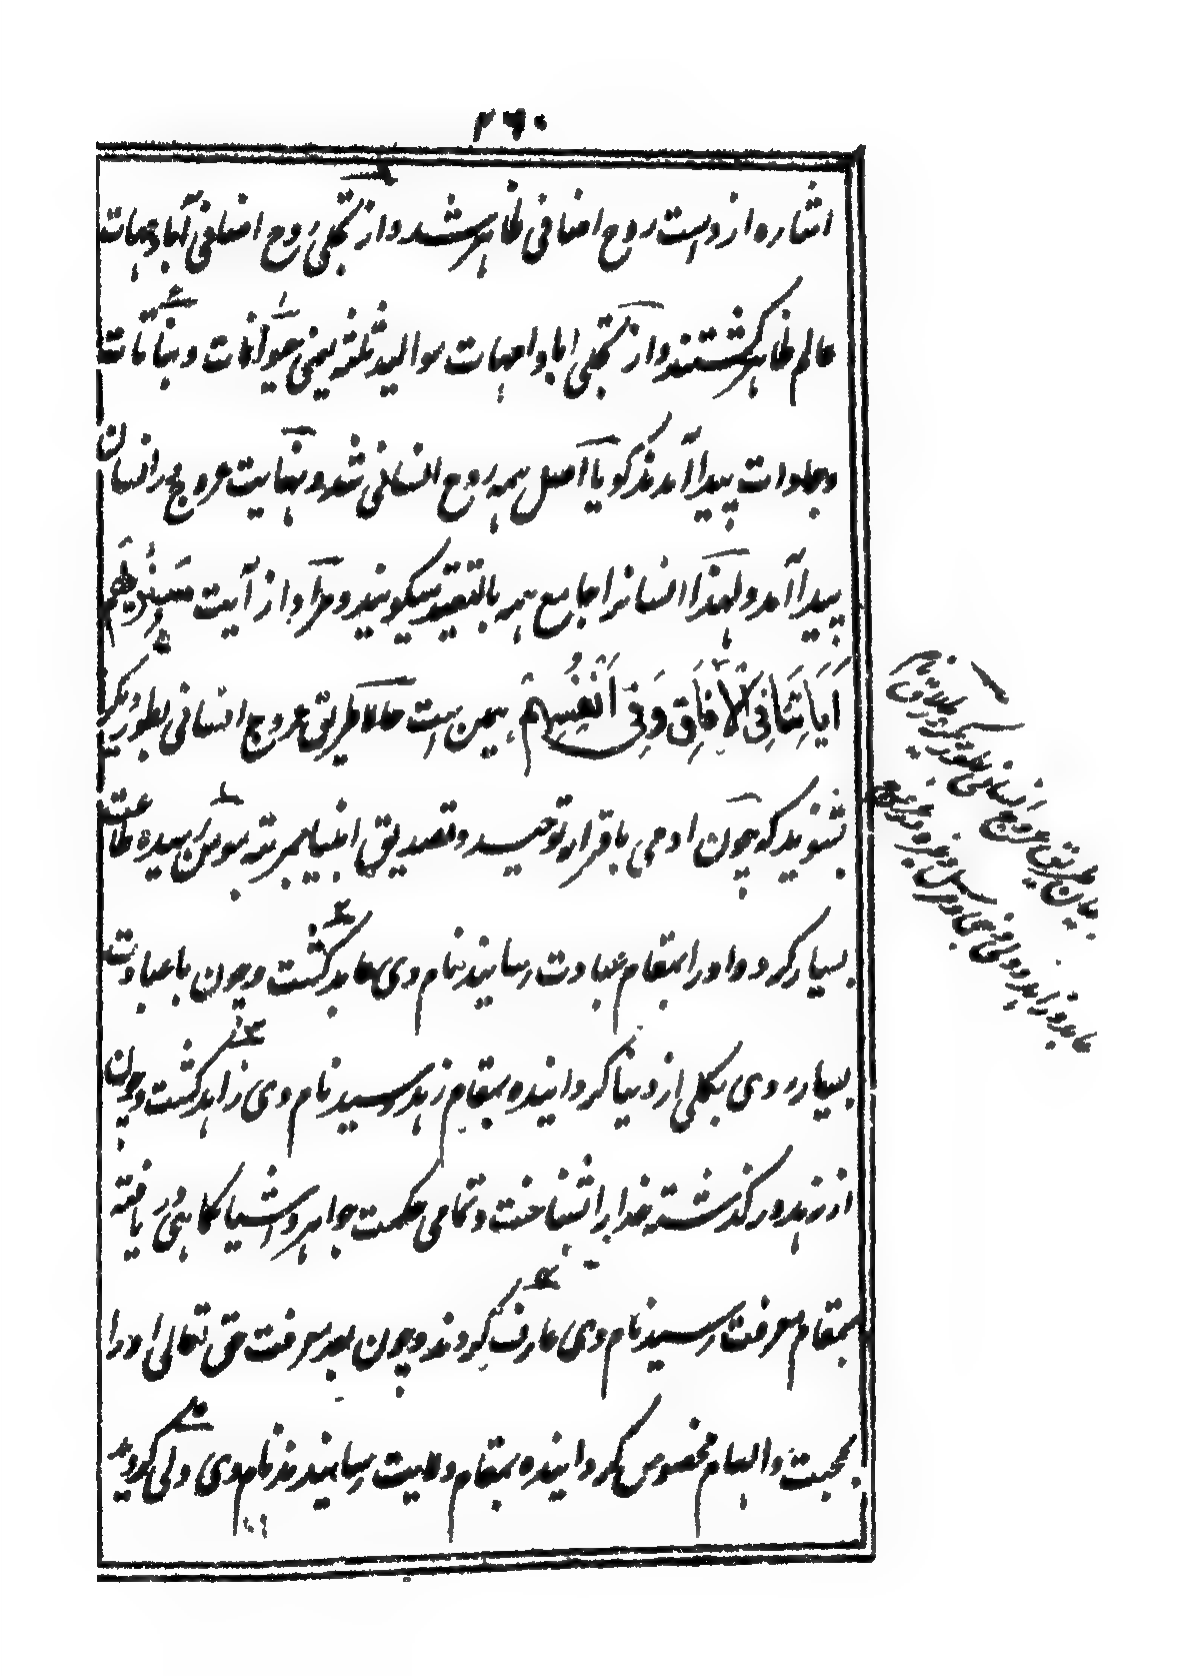 ۲۶۰
اشاره ازوست روح اضافی ظاهر شد و از تجلی روح اضافی آبا و امهات
عالم ظاهر گشتند و از تجلی ابا و امهات موالید ثلثه یعنی حیوانات و نباتات
و جمادات پیدا آمدند گویا اصل همه روح انسانی شد و نهایت عروج بر انسان
پیدا آمد و لهذا انسانرا جامع همه بالتقید میگویند و مراد از آیت سَنُرِیهِم
آیاتِنَا فِی الآفاقِ وَفِی اَنفُسِهِم همین ست حالا طریق عروج انسانی بطور دیگر
بشنوید که چون ادمی باقرار توحید و تصدیق انبیا بمرتبه مومن رسیده طاعت
بسیار کرد و او را بمقام عبادت رسانیدند نام وی عابد گشت و چون با عبادت
بسیار روی بکلی از دنیا گردانیده بمقام زهد رسید نام وی زاهد گشت و چون
از زهد در گذشته خدا را شناخت و تمامی حکمت جواهر و اشیا کما هی در یافته
بمقام معرفت رسید نام وی عارف گردند و چون بعد معرفت حق تعالی او را
بمحبت و الهام مخصوص گردانیده بمقام ولایت رسانیدند نام وی ولی گردید
بیان طریق عروج انسانی بطور دیگر و علاقه نام
عابد و زاهد و ولی و نبی و مرسل و غیره